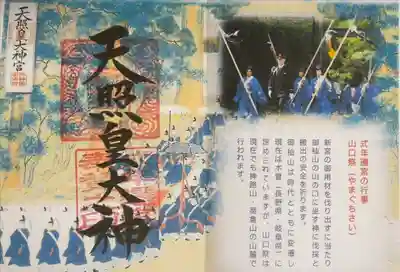 天照皇大神宮
天照皇大神
式年遷宮の行事
山口祭(やまぐちさい)
新宮の御用材を伐り出すに当たり
御杣山の山の口に坐す神に伐採と
搬出の安全を祈ります。
御杣山は時代とともに変遷し
現在は木曽(長野県・岐阜県)に
定められていますが、山口祭は
現在でも神路山・高倉山の山麓で
行われます。